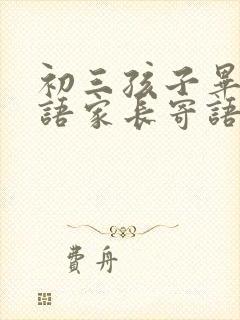 初三孩子畢
語家長寄語
費舟